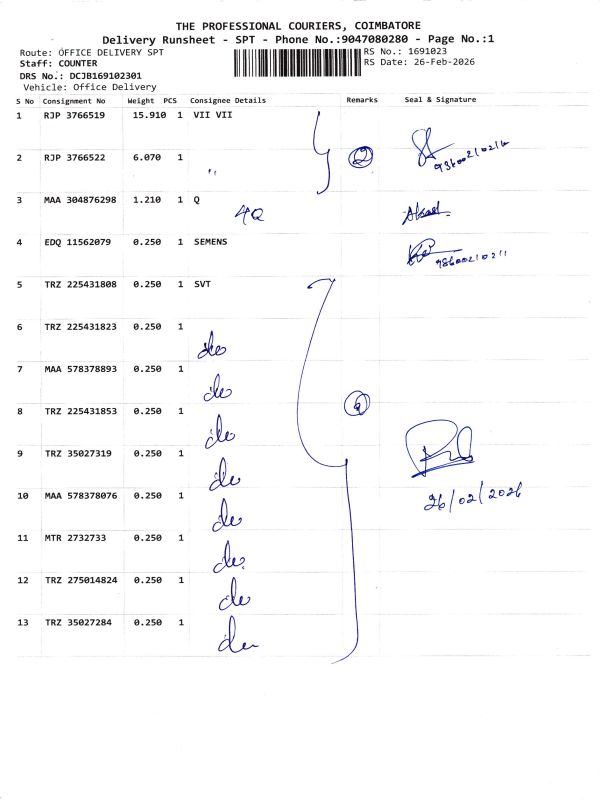 THE PROFESSIONAL COURIERS, COIMBATORE
Delivery Runsheet - SPT - Phone No.:9047080280 - Page No.:1
Route: OFFICE DELIVERY SPT
RS No.: 1691023
Staff: COUNTER
RS Date: 26-Feb-2026
DRS No.: DCJB169102301
Vehicle: Office Delivery
S No Consignment No Weight PCS Consignee Details Remarks Seal & Signature
1 RJP 3766519 15.910 1 VII VII
2 RJP 3766522 6.070 1 " 2
3 MAA 304876298 1.210 1 Q
4Q
4 EDQ 11562079 0.250 1 SEMENS
5 TRZ 225431808 0.250 1 SVT
6 TRZ 225431823 0.250 1
do
7 MAA 578378893 0.250 1
do
8 TRZ 225431853 0.250 1
do
9 TRZ 35027319 0.250 1
do
10 MAA 578378076 0.250 1
26/02/2026
do
11 MTR 2732733 0.250 1
do
12 TRZ 275014824 0.250 1
do
13 TRZ 35027284 0.250 1
do